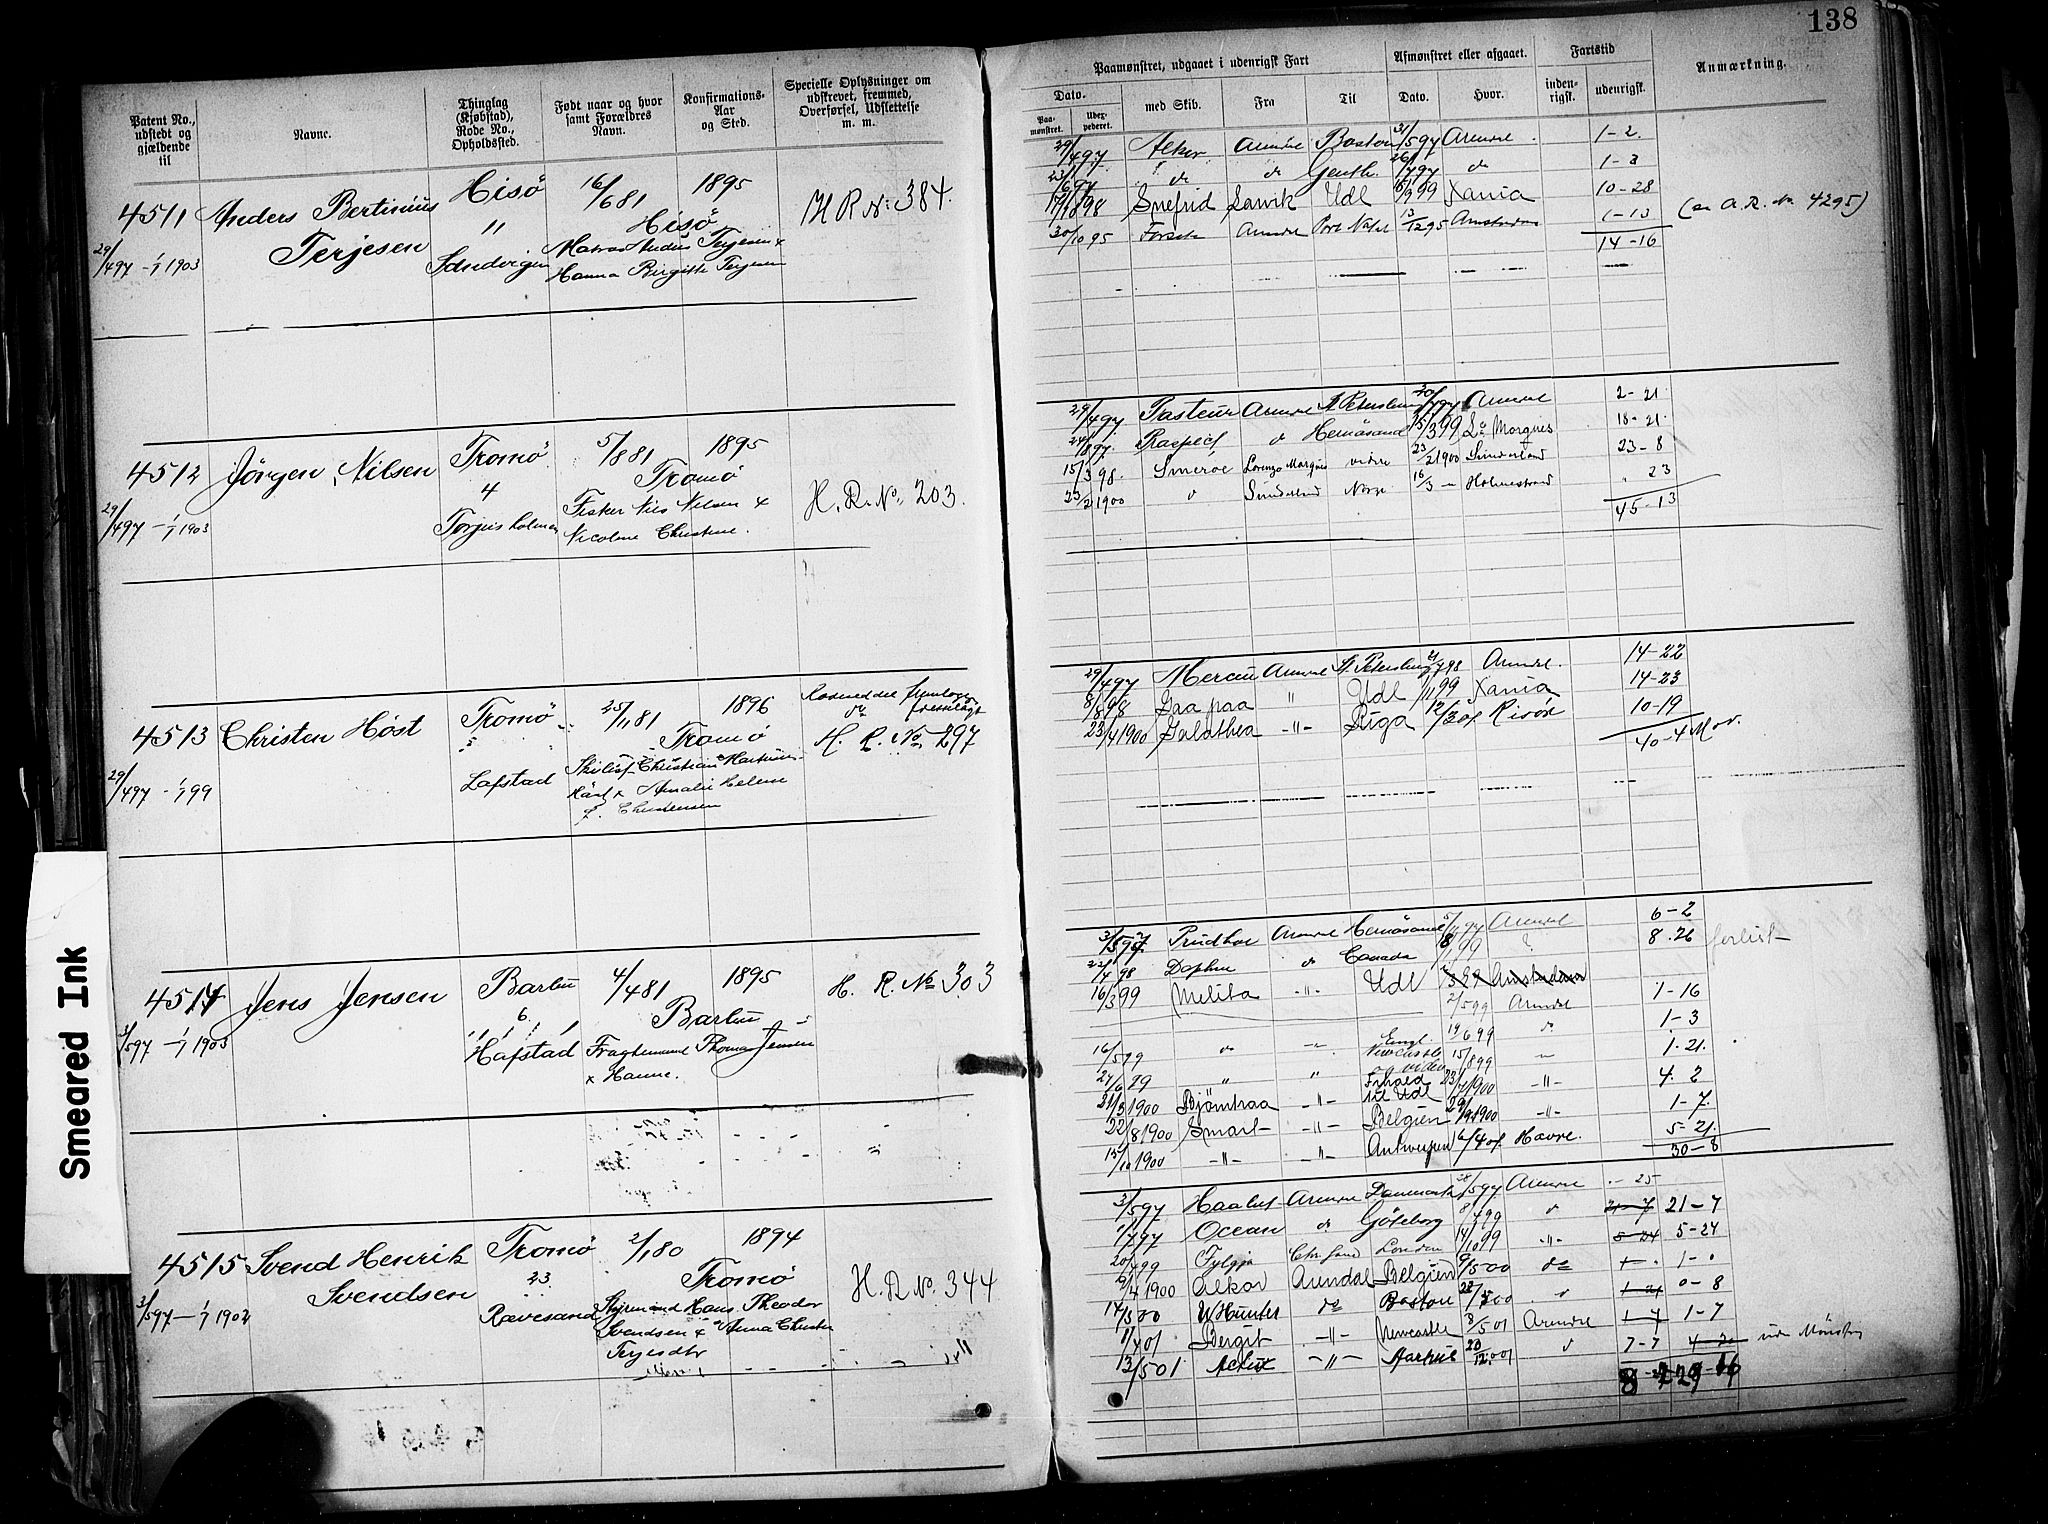 138
Patent No., udstedt og gjældende til
Navne.
Thinglag (Kjøbstad), Rode No., Opholdssted.
Født naar og hvor samt Forældres Navn.
Konfirmations-Aar og Sted.
Specielle Oplysninger om udskrevet, fremmed, Overførsel, Udslettelse m. m.
Paamønstret, udgaaet i udenrigsk Fart
Afmønstret eller afgaaet.
Fartstid
Anmærkning.
Dato.
med Skib.
Fra
Til
Dato.
Hvor.
inden-rigsk.
udenrigsk.
Paa-mønstret.
Udex-pederet.
4511 Anders Bertinius Terjesen
29/4 97 - 1/1 1903
Hisö
"
Sandvigen
16/6 81
Hisö
Matros Anders Terjesen &
Hanna Birgitte Terjesen
1895
H R No: 384.
29/4 97 Alkor Arendal Boston 31/5 97 Arendal 1-2
23/6 97 do do Genth. 26/7 97 do 1-3
98 Snefrid Larvik Udl 99 Xania 10-28
30/10 95 Arendal Port Natal 13/12 95 Amsterdam 1-13
14-16
(se A. R. No. 4295)
4512 Jörgen Nilsen
29/4 97 - 1/1 1903
Tromö
4
Torjusholmen
5/8 81
Tromö
Fisker Nils Nilsen &
Nicoline Christine.
1895
H. R. No. 203.
29/4 97 Pasteur Arendal St. Petersburg 30/7 97 Arendal 2-21
24/8 97 do Hernösand 15/3 99 Lo Marques 18-21
15/3 98. Smeroe Lorenzo Marques videre 23/2 1900 Sunderland 23-8
23/2 1900 do Sunderland Norge 16/3 - Holmestrand " 23
45-13
4513 Christen Höst
29/4 97 - 1/1 99
Tromö
5
Lofstad
25/11 81
Tromö
Christian Martinius
Höst & Amalie Helene
f. Christensen
1896
H. R. No 297
29/4 97 Mercur Arendal St. Petersburg 21/7 98 Arendal. 14-22
8/8 98 Gaa paa " Udl /11 99 Xania 14-23
23/4 1900 Galathea -"- Riga 12/3 01 Risör 10-19
40-4
4514 Jens Jensen
3/5 97 - 1/1 1903
Barbu
6.
Hafstad
4/4 81
Barbu
Fragtemand Thomas Jensen
& Hanne.
1895
H. R. No 303
3/5 97 Prudhoe Arendal Hernösand 5/11 97 Arendal 6-2
22/4 98 Daphne do Canada 18/1 99 ? 8.26 forlist
16/3 99 Melita -"- Udl Amsterdam
2/5 99 Arendal 1-16
16/5 99 do -"- Engl. 14/6 99 do 1-3
27/6 99 " " Newcastle og videre 15/8 99 - 1.21.
21/3 1900 Björnhaa -"- Udl 23/7 1900 -"- 4.2
22/8 1900 Smart -"- Belgien 29/9 1900 -"- 1-7.
15/10 1900 -"- -"- Antwerpen 6/4 01. Havre. 5-21.
30-8
4515 Svend Henrik Svendsen
3/5 97 - 1/1 1902
Tromö
23
Rævesand
2/1 80
Tromö
Styrmand Hans Theodor
Svendsen & Anna Christine
Terjesdtr
1894
H. R No. 344
3/5 97 Haabet Arendal Danmark 28/5 97 Arendal - 25
1/7 97 Ocean do Göteborg 8/4 99 do 21-7 21-7
20/4 99 Fylgja Chr.sand London 14/10 99 -"- 5-24 5-24
6/4 1900 Alkor Arendal Belgien 6/5 00 do 1- " 1-0
14/5 00 W Hunter do Boston 22/ 00 do 1-21 0-8
1/4 01 Bergit -"- Newcastle 8/5 01 Arendal 1-7 1-7
13/5 01 -"- Aarhus 20/12 01 do 7-7
Smeared Ink